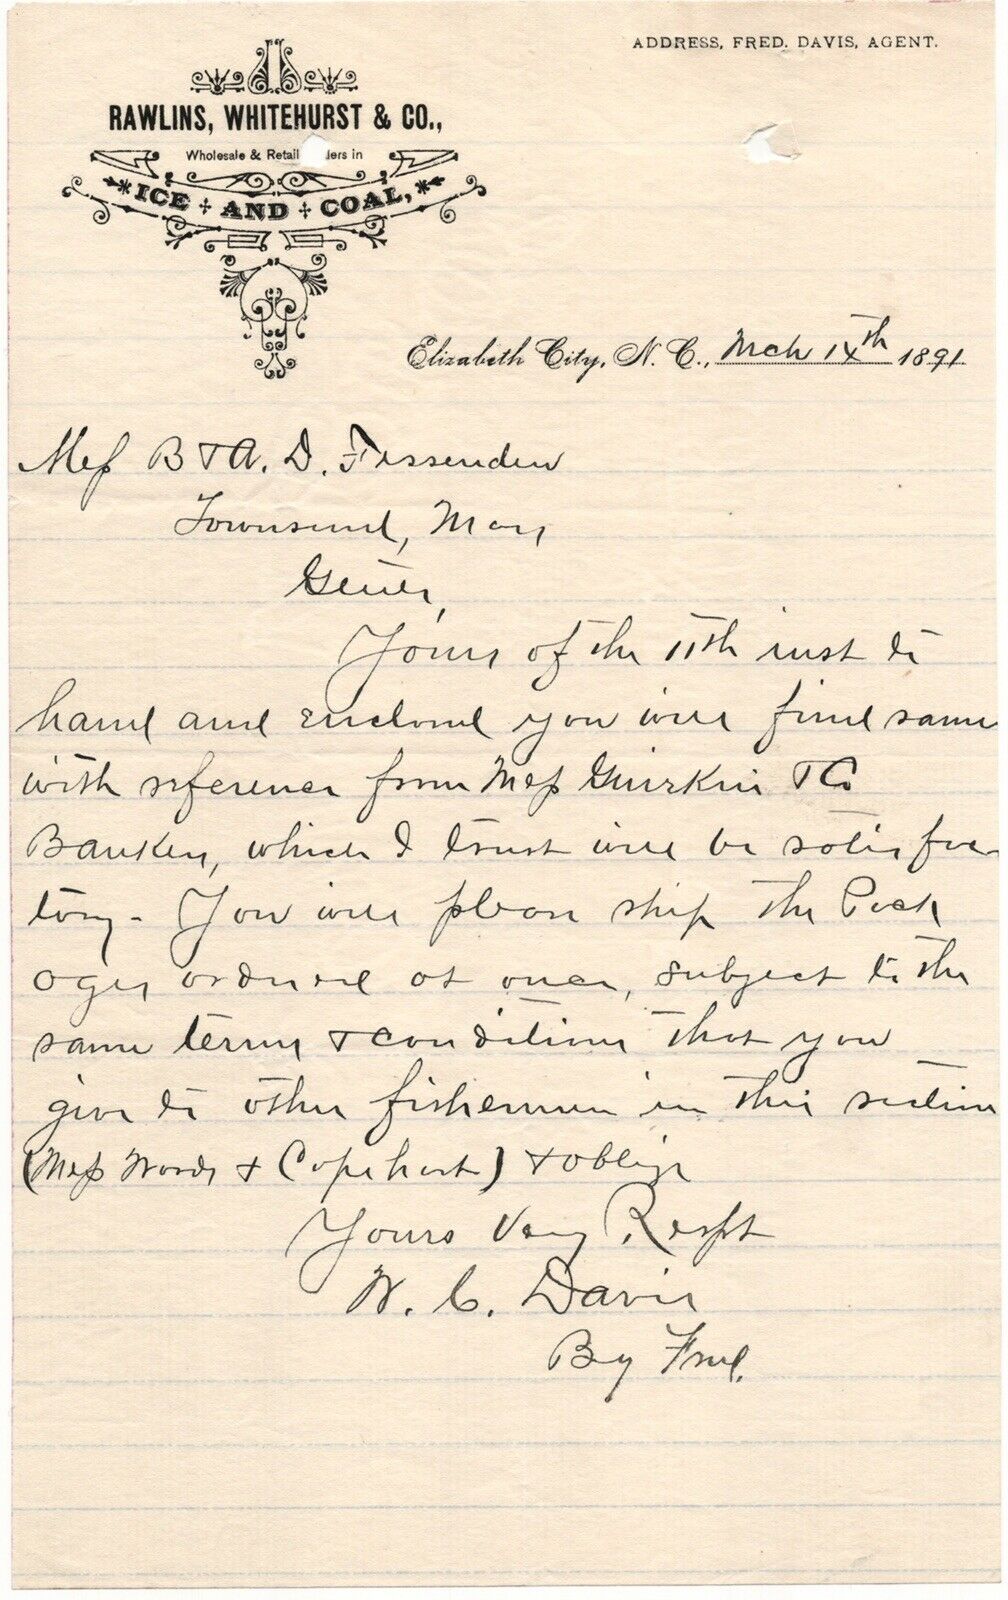 ADDRESS, FRED. DAVIS, AGENT.
RAWLINS, WHITEHURST & CO.,
Wholesale & Retail lers in
ICE AND COAL,
Elizabeth City, N. C., Mch 14th 1891
Mess B & A. D. Fessenden
Townsend, Mass
Gents,
Yours of the 11th inst to
hand and enclosed you will find same
with reference from Mess Guirkin & Co
Bankers, which I trust will be satisfac
tory - You will please ship the Pack
ages ordered at once, subject to the
same terms & conditions that you
give to other fishermen in this section
(Mess Woods & Capehart) & oblige
Yours Very Respt
W. C. Davis
By Fred.